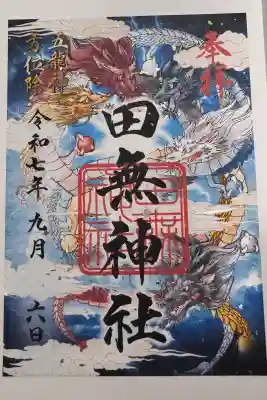 奉拝
田無神社
五龍神
令和七年 九月 六日